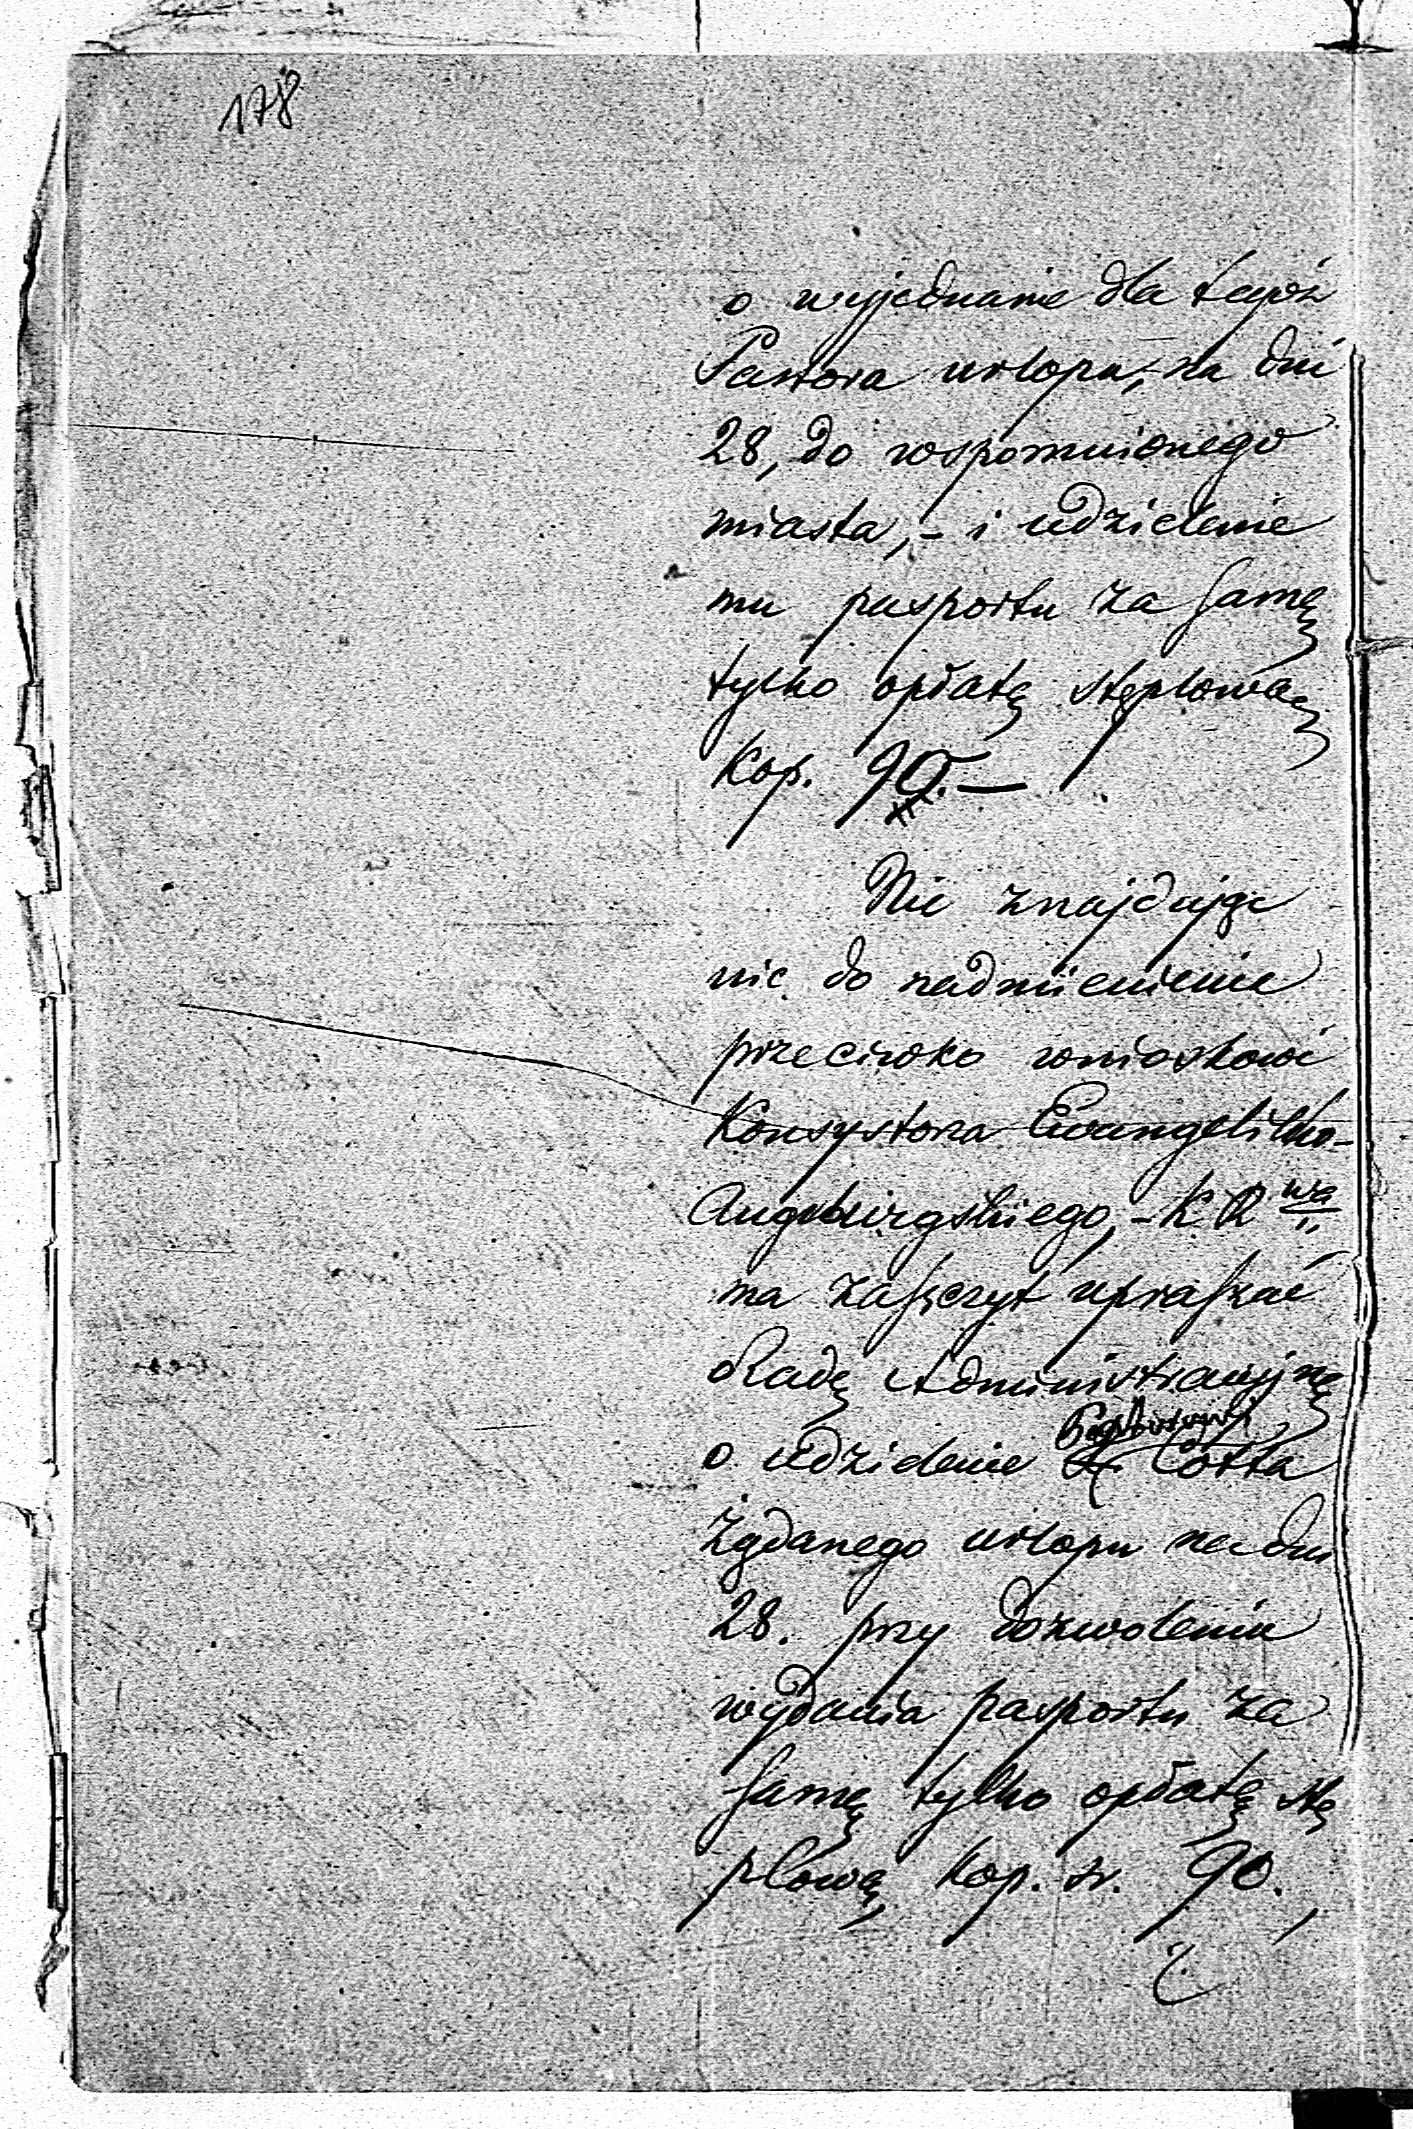 178
o wyjednanie dla tegoż
Pastora urlopu, na dni
28, do wspomnionego
miasta, - i udzielenie
mu pasportu za samą
tylko opłatę stęplową
kop. 90. —
Nie znajdując
nic do nadmienienia
przeciwko wnioskowi
Konsystorza Ewangelicko-
Augsburgskiego, - K R wa
ma zaszczyt upraszać
Radę Administracyjną
o udzielenie Cotta
żądanego urlopu na dni
28. przy dozwoleniu
wydania pasportu za
samą tylko opłatę stę
plową kop. sr. 90.